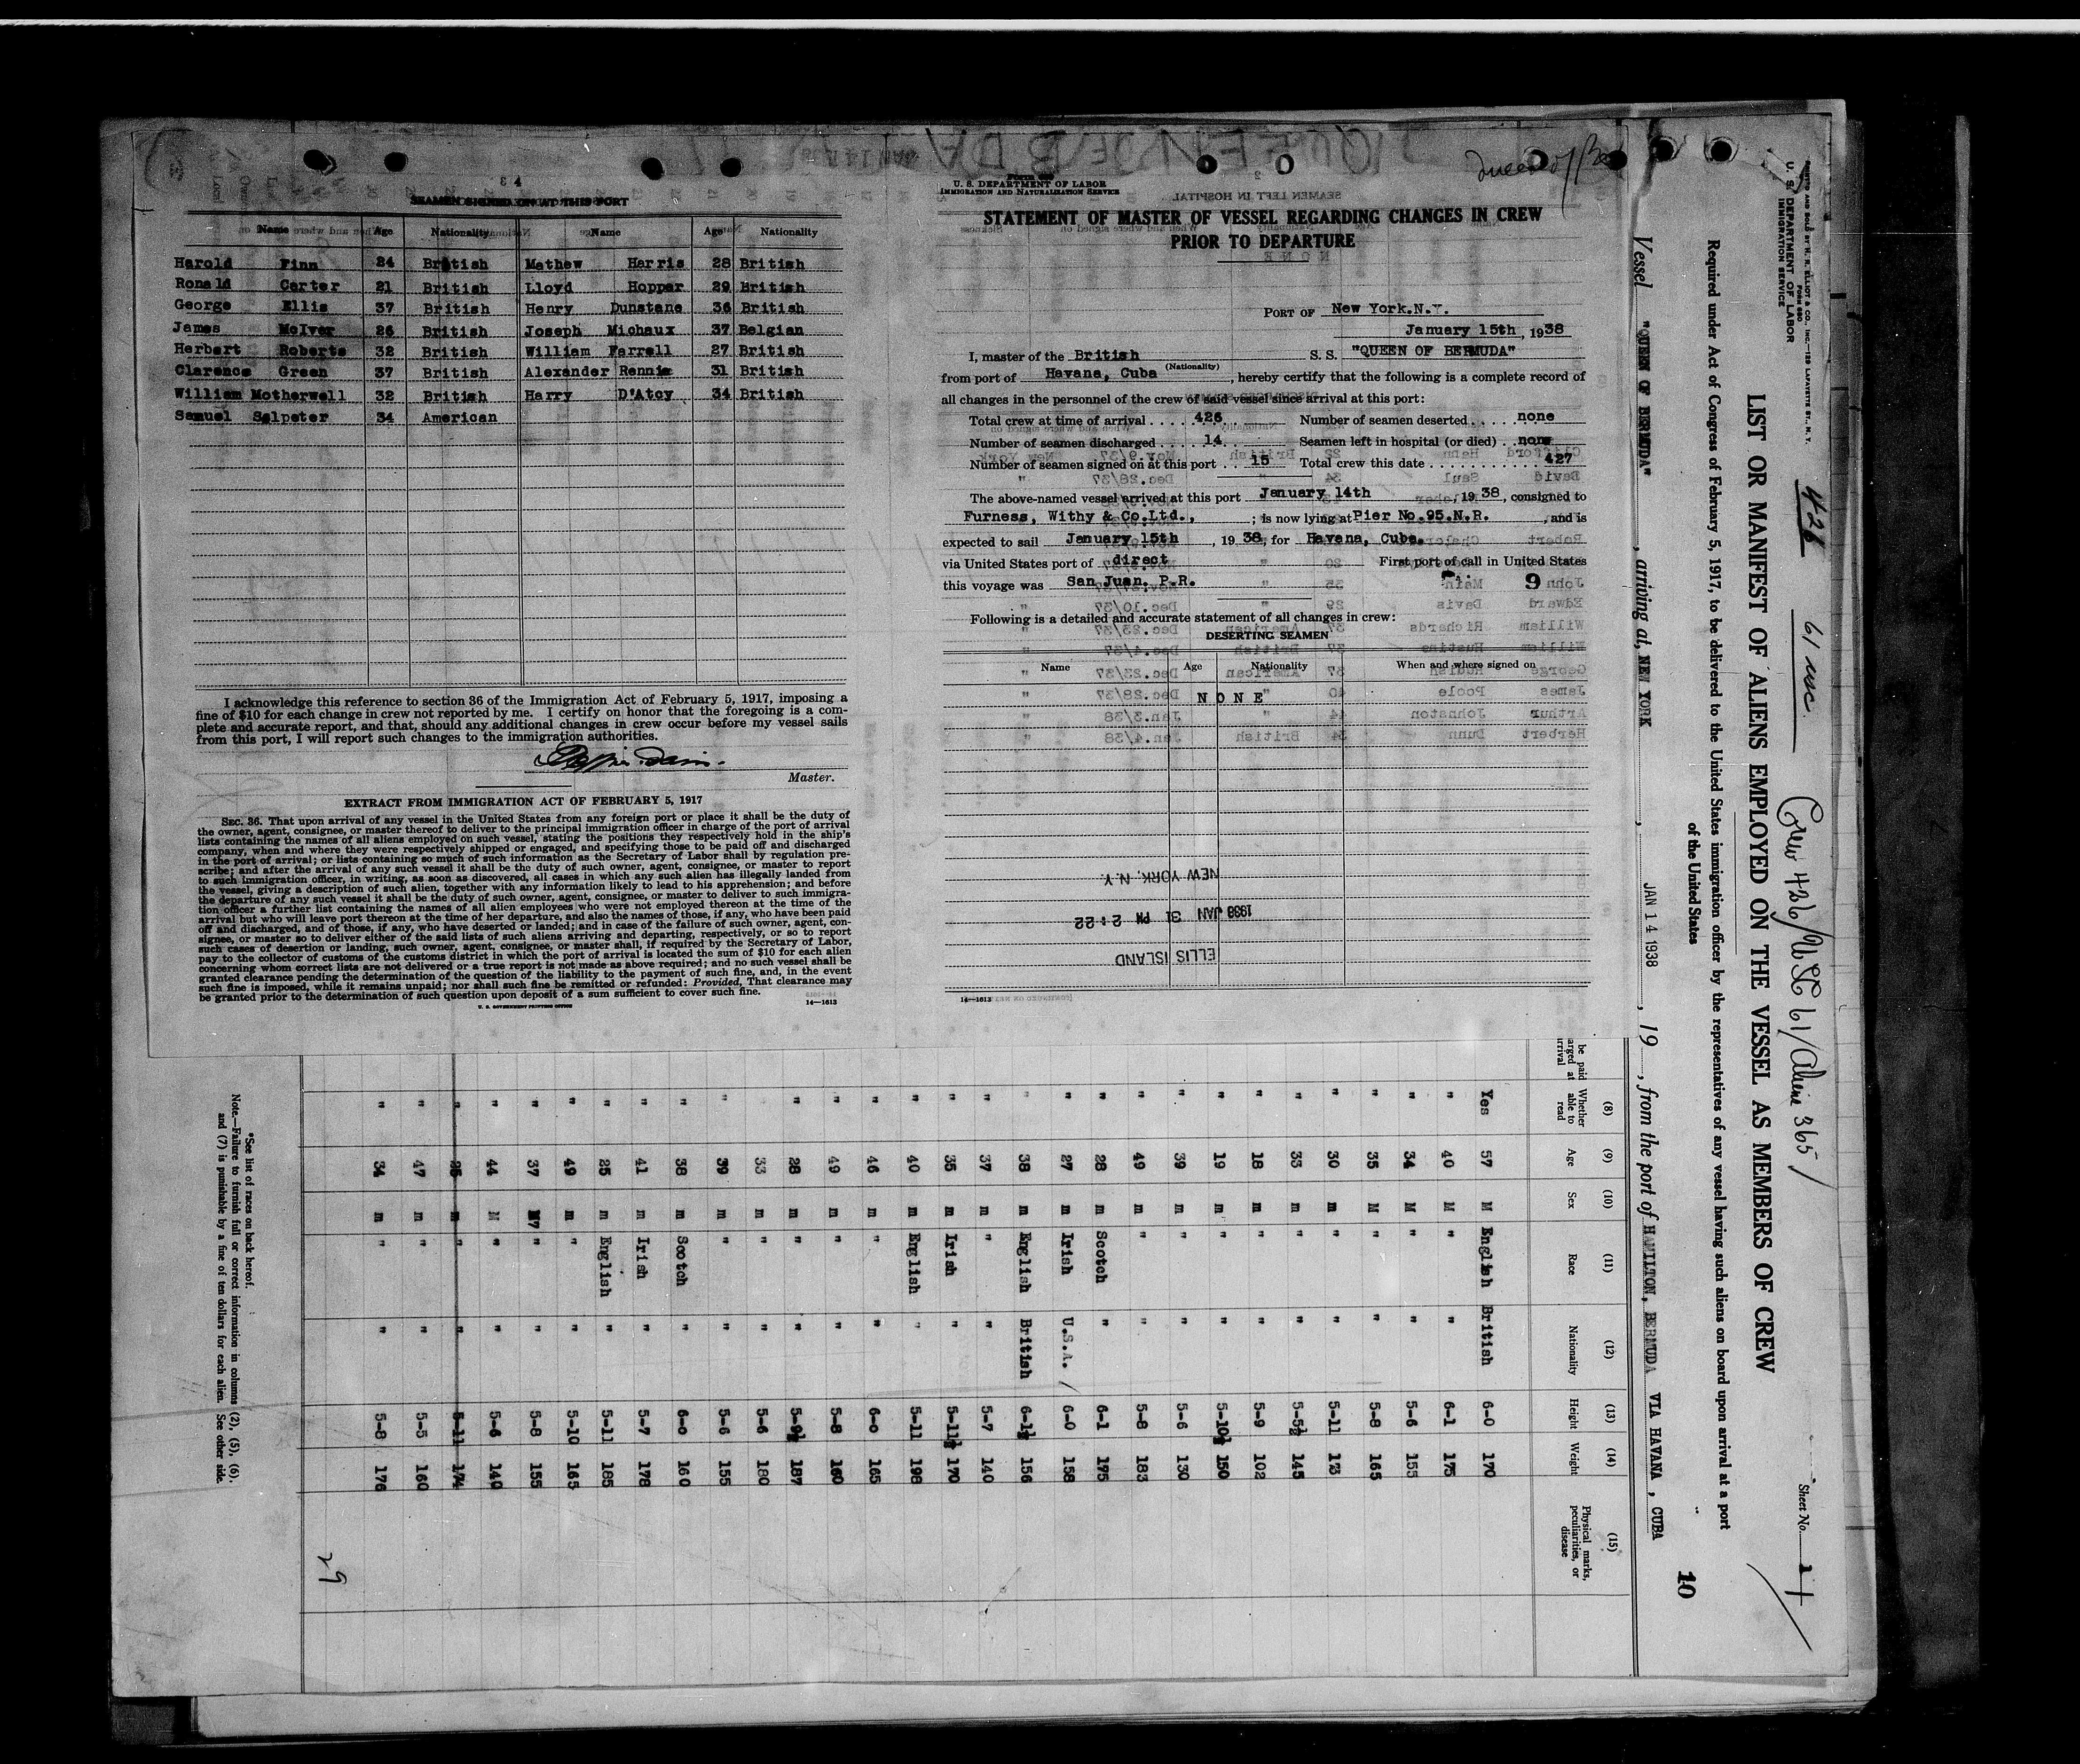 SEAMEN SIGNED ON AT THIS PORT
Name Age Nationality Name Age Nationality
Harold Finn 24 British Mathew Harris 28 British
Ronald Carter 21 British Lloyd Hoppar 29 British
George Ellis 37 British Henry Dunstane 36 British
James McIver 26 British Joseph Michaux 37 Belgian
Herbert Roberts 32 British William Farrell 27 British
Clarence Green 37 British Alexander Rennie 31 British
William Motherwell 32 British Harry D'Atoy 34 British
Samuel Salpeter 34 American
I acknowledge this reference to section 36 of the Immigration Act of February 5, 1917, imposing a
fine of $10 for each change in crew not reported by me. I certify on honor that the foregoing is a com-
plete and accurate report, and that, should any additional changes in crew occur before my vessel sails
from this port, I will report such changes to the immigration authorities.
Master.
EXTRACT FROM IMMIGRATION ACT OF FEBRUARY 5, 1917
SEC. 36. That upon arrival of any vessel in the United States from any foreign port or place it shall be the duty of
the owner, agent, consignee, or master thereof to deliver to the principal immigration officer in charge of the port of arrival
lists containing the names of all aliens employed on such vessel, stating the positions they respectively hold in the ship's
company, when and where they were respectively shipped or engaged, and specifying those to be paid off and discharged
in the port of arrival; or lists containing so much of such information as the Secretary of Labor shall by regulation pre-
scribe; and after the arrival of any such vessel it shall be the duty of such owner, agent, consignee, or master to report
to such immigration officer, in writing, as soon as discovered, all cases in which any such alien has illegally landed from
the vessel, giving a description of such alien, together with any information likely to lead to his apprehension; and before
the departure of any such vessel it shall be the duty of such owner, agent, consignee, or master to deliver to such immigra-
tion officer a further list containing the names of all alien employees who were not employed thereon at the time of the
arrival but who will leave port thereon at the time of her departure, and also the names of those, if any, who have been paid
off and discharged, and of those, if any, who have deserted or landed; and in case of the failure of such owner, agent, con-
signee, or master so to deliver either of the said lists of such aliens arriving and departing, respectively, or so to report
such cases of desertion or landing, such owner, agent, consignee, or master shall, if required by the Secretary of Labor,
pay to the collector of customs of the customs district in which the port of arrival is located the sum of $10 for each alien
concerning whom correct lists are not delivered or a true report is not made as above required; and no such vessel shall be
granted clearance pending the determination of the question of the liability to the payment of such fine, and, in the event
such fine is imposed, while it remains unpaid; nor shall such fine be remitted or refunded: Provided, That clearance may
be granted prior to the determination of such question upon deposit of a sum sufficient to cover such fine.
U. S. GOVERNMENT PRINTING OFFICE 14—1613
U. S. DEPARTMENT OF LABOR
IMMIGRATION AND NATURALIZATION SERVICE
STATEMENT OF MASTER OF VESSEL REGARDING CHANGES IN CREW
PRIOR TO DEPARTURE
PORT OF New York.N.Y.
January 15th, 1938
I, master of the British S. S. "QUEEN OF BERMUDA"
(Nationality)
from port of Havana, Cuba, hereby certify that the following is a complete record of
all changes in the personnel of the crew of said vessel since arrival at this port:
Total crew at time of arrival . . . . 426 Number of seamen deserted . . . . none
Number of seamen discharged . . . . 14 Seamen left in hospital (or died) . . none
Number of seamen signed on at this port . . 15 Total crew this date . . . . . . . . . . . 427
The above-named vessel arrived at this port January 14th, 1938, consigned to
Furness, Withy & Co.Ltd., ; is now lying at Pier No.95.N.R., and is
expected to sail January 15th, 1938, for Havana, Cuba.
via United States port of direct First port of call in United States
this voyage was San Juan. P.R. 9
Following is a detailed and accurate statement of all changes in crew:
DESERTING SEAMEN
Name Age Nationality When and where signed on
N O N E
NEW YORK, N.Y.
1938 JAN 31 PM 2:22
ELLIS ISLAND
14—1613
U. S. DEPARTMENT OF LABOR
IMMIGRATION SERVICE
426 61 usc.
Crew 426/USC 61/Aliens 365/
Sheet No. 1
LIST OR MANIFEST OF ALIENS EMPLOYED ON THE VESSEL AS MEMBERS OF CREW
Required under Act of Congress of February 5, 1917, to be delivered to the United States immigration officer by the representatives of any vessel having such aliens on board upon arrival at a port
of the United States
10
Vessel "QUEEN OF BERMUDA", arriving at NEW YORK, JAN 14 1938, 19, from the port of HAMILTON, BERMUDA VIA HAVANA, CUBA
(8) (9) (10) (11) (12) (13) (14) (15)
Whether able to read Age Sex Race Nationality Height Weight Physical marks, peculiarities, or disease
Yes 57 M English British 6-0 170
" 40 M " " 6-1 175
" 34 M " " 5-6 155
" 35 M " " 5-8 165
" 30 m " " 5-11 173
" 33 m " " 5-5½ 145
" 18 m " " 5-9 102
" 19 m " " 5-10½ 150
" 39 m " " 5-6 130
" 49 m " " 5-8 183
" 28 m Scotch " 6-1 195
" 27 m Irish U.S.A. 6-0 158
" 38 m English British 6-1½ 156
" 37 m " " 5-7 140
" 35 m Irish " 5-11½ 170
" 40 m English " 5-11 198
" 46 m " " 6-0 165
" 49 m " " 5-8 160
" 28 m " " 5-9½ 187
" 33 m " " 5-6 180
" 39 m " " 5-6 155
" 38 m Scotch " 6-0 160
" 41 m Irish " 5-7 178
" 25 m English " 5-11 185
" 49 m " " 5-10 165
" 37 M " " 5-8 155
" 44 M " " 5-6 140
" 25 m " " 5-11 174
" 47 m " " 5-5 160
" 34 m " " 5-8 176
29
*See list of races on back hereof.
Note.—Failure to furnish full or correct information in columns (2), (5), (6),
and (7) is punishable by a fine of ten dollars for each alien. See other side.